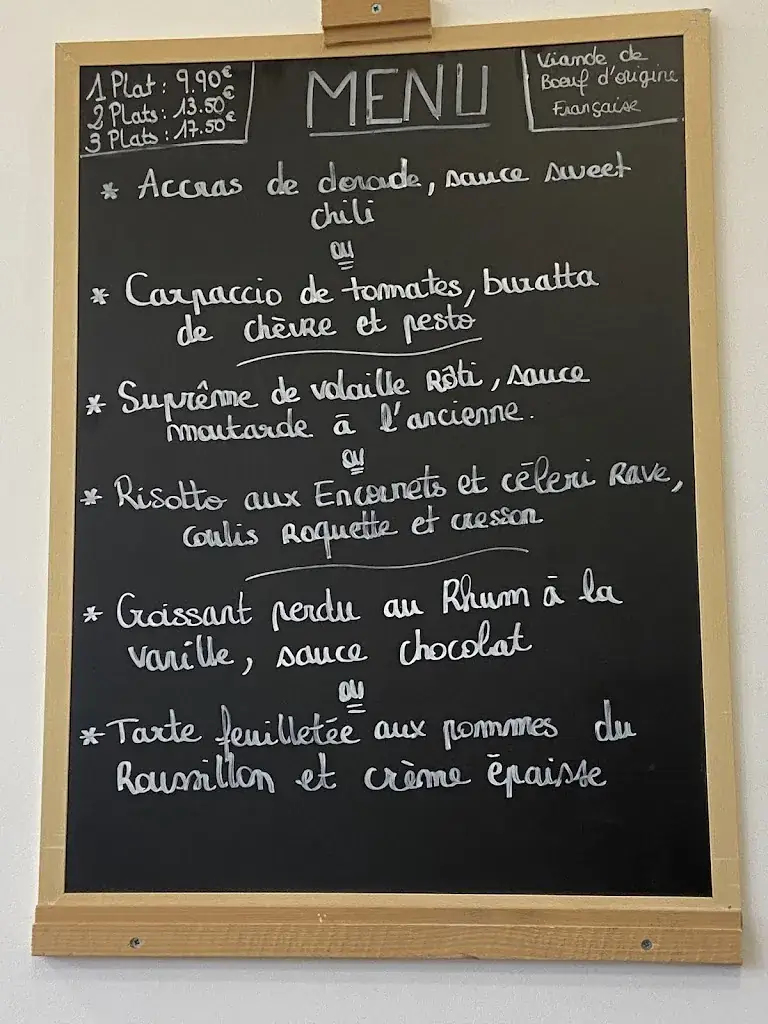 1 Plat : 9.90€
2 Plats : 13.50€
3 Plats : 17.50€
MENU
Viande de
Boeuf d'origine
Française
* Accras de dorade, sauce sweet
chili
ou
* Carpaccio de tomates, buratta
de chèvre et pesto
* Suprême de volaille Rôti, sauce
moutarde à l'ancienne.
ou
* Risotto aux Encornets et céleri Rave,
coulis Roquette et cresson
* Croissant perdu au Rhum à la
vanille, sauce chocolat
ou
* Tarte feuilletée aux pommes du
Roussillon et crème épaisse